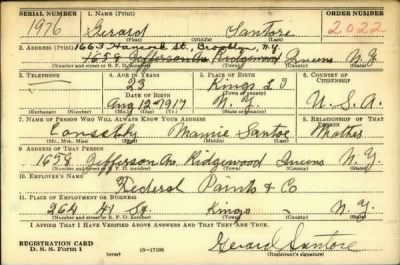 SERIAL NUMBER 1. NAME (Print) ORDER NUMBER
1976 Gerard Santore 2022
(First) (Middle) (Last)
2. ADDRESS (Print) 1663 Hancock St., Brooklyn, N.Y.
1658 Jefferson Av. Ridgewood Queens N.Y.
(Number and street or R. F. D. number) (Town) (County) (State)
3. TELEPHONE 4. AGE IN YEARS 5. PLACE OF BIRTH 6. COUNTRY OF CITIZENSHIP
23 Kings
DATE OF BIRTH (Town or county)
Aug 12 1917 N.Y. U.S.A.
(Exchange) (Number) (Mo.) (Day) (Yr.) (State or country)
7. NAME OF PERSON WHO WILL ALWAYS KNOW YOUR ADDRESS 8. RELATIONSHIP OF THAT PERSON
Mamie Santore Mother
(Mr., Mrs., Miss) (First) (Middle) (Last)
9. ADDRESS OF THAT PERSON
1658 Jefferson Av. Ridgewood Queens N.Y.
(Number and street or R. F. D. number) (Town) (County) (State)
10. EMPLOYER'S NAME
Federal Paints & Co
11. PLACE OF EMPLOYMENT OR BUSINESS
264 41 St. Kings N.Y.
(Number and street or R. F. D. number) (Town) (County) (State)
I AFFIRM THAT I HAVE VERIFIED ABOVE ANSWERS AND THAT THEY ARE TRUE.
REGISTRATION CARD
D. S. S. Form 1 Gerard Santore
(Registrant's signature)